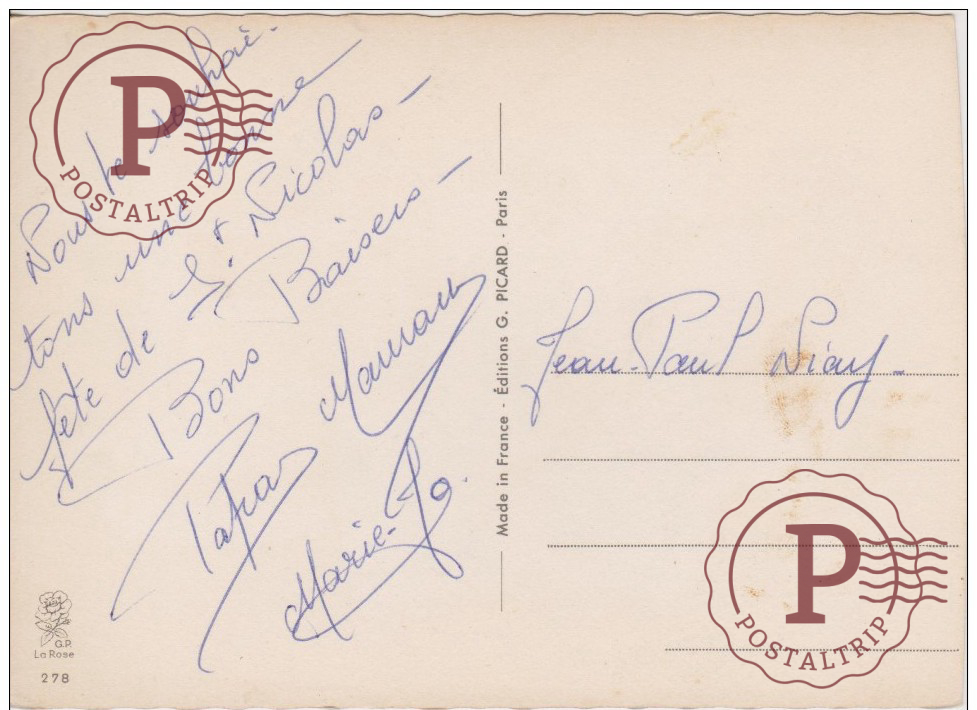 Nous te souhai-
tons une bonne
fête de St Nicolas -
Bons Baisers -
Papa Maman
Marie-Jo.
Made in France - Éditions G. PICARD - Paris
Jean-Paul
G.P.
La Rose
278
P
POSTALTRIP
P
POSTALTRIP